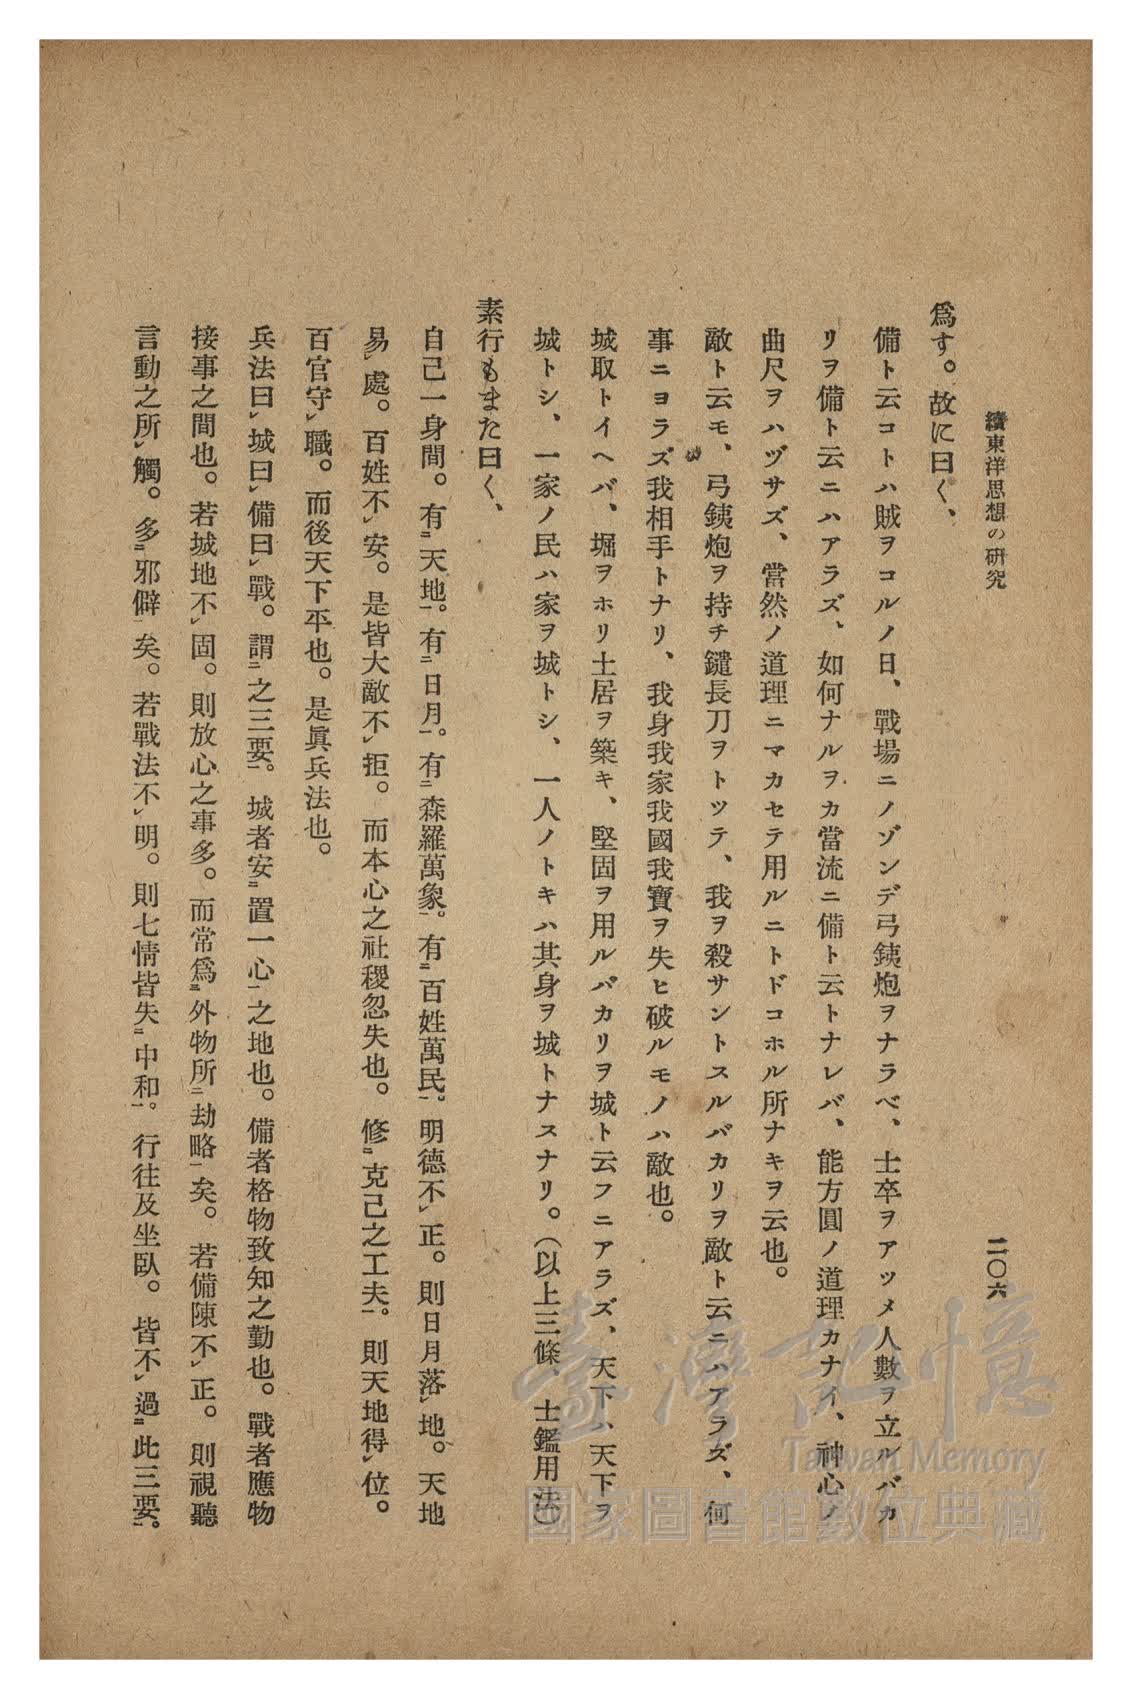 續東洋思想の硏究
二〇六
爲す。故に曰く、
備ト云コトハ賊ヲコルノ日、戰場ニノゾンデ弓銕炮ヲナラベ、士卒ヲアツメ人數ヲ立ルバカ
リヲ備ト云ニハアラズ、如何ナルヲカ當流ニ備ト云トナレバ、能方圓ノ道理カナイ、神心ノ
曲尺ヲハヅサズ、當然ノ道理ニマカセテ用ルニトドコホル所ナキヲ云也。
敵ト云モ、弓銕炮ヲ持チ鑓長刀ヲトツテ、我ヲ殺サントスルバカリヲ敵ト云ニハアラズ、何
事ニヨラズ我相手トナリ、我身我家我國我寶ヲ失ヒ破ルモノハ敵也。
城取トイヘバ、堀ヲホリ土居ヲ築キ、堅固ヲ用ルバカリヲ城ト云フニアラズ、天下ハ天下ヲ
城トシ、一家ノ民ハ家ヲ城トシ、一人ノトキハ其身ヲ城トナスナリ。(以上三條、士鑑用法)
素行もまた曰く、
自己一身間。有二天地一。有二日月一。有二森羅萬象一。有二百姓萬民一。明德不レ正。則日月落レ地。天地
易レ處。百姓不レ安。是皆大敵不レ拒。而本心之社稷忽失也。修二克己之工夫一。則天地得レ位。
百官守レ職。而後天下平也。是眞兵法也。
兵法曰レ城曰レ備曰レ戰。謂二之三要一。城者安二置一心一之地也。備者格物致知之勤也。戰者應物
接事之間也。若城地不レ固。則放心之事多。而常爲三外物所二劫略一矣。若備陳不レ正。則視聽
言動之所レ觸。多二邪僻一矣。若戰法不レ明。則七情皆失二中和一。行往及坐臥。皆不レ過二此三要一。
臺灣記憶
Taiwan Memory
國家圖書館數位典藏